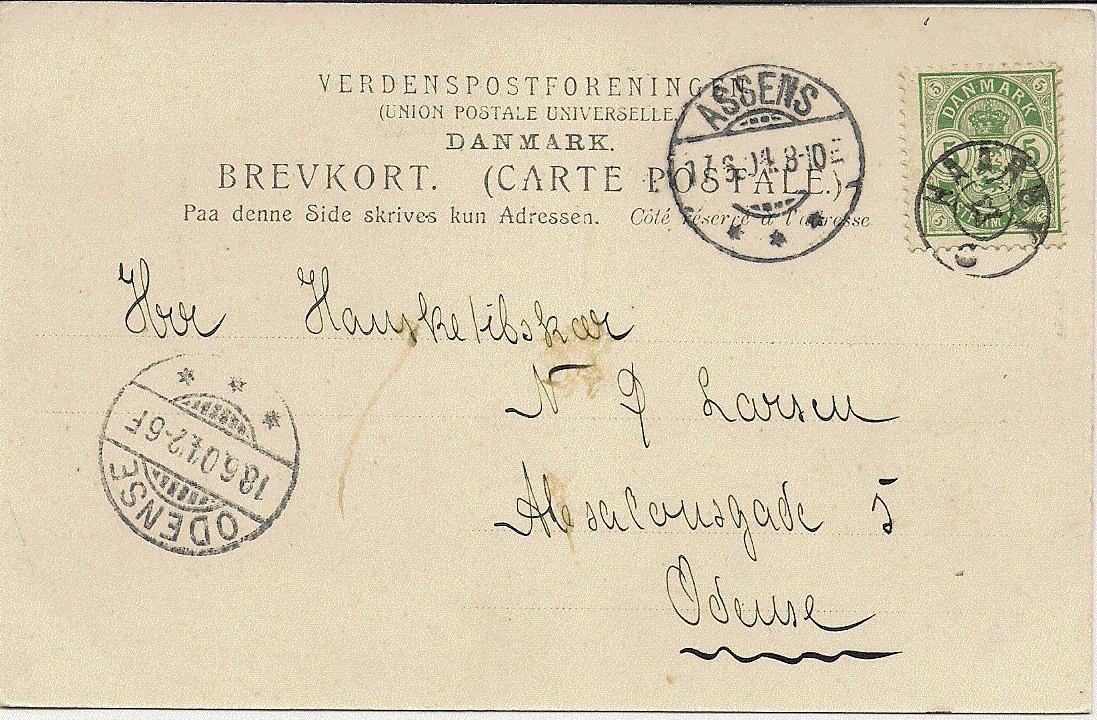 VERDENSPOSTFORENINGEN
(UNION POSTALE UNIVERSELLE.)
DANMARK.
BREVKORT. (CARTE POSTALE.)
Paa denne Side skrives kun Adressen. Côté réservé à l'adresse
ASSENS
17.6.04. 8-10 E
DANMARK
5 5
5 5
5 5
HAARBY
Hrr Handskefabskær
N P Larsen
Absalonsgade 5
Odense
ODENSE
18.6.04. 2-6 F